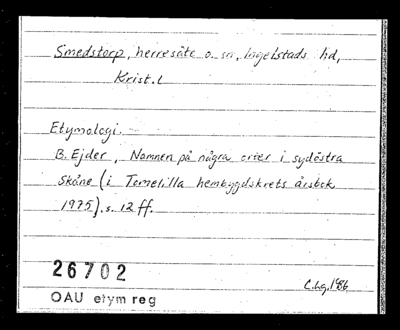 Smedstorp, herresäte o. sn, Ingelstads hd,
Krist. l
Etymologi.
B. Ejder, Namnen på några orter i sydöstra
Skåne (i Tomelilla hembygdskrets årsbok
1975). s. 12 ff.
26702
OAU etym reg